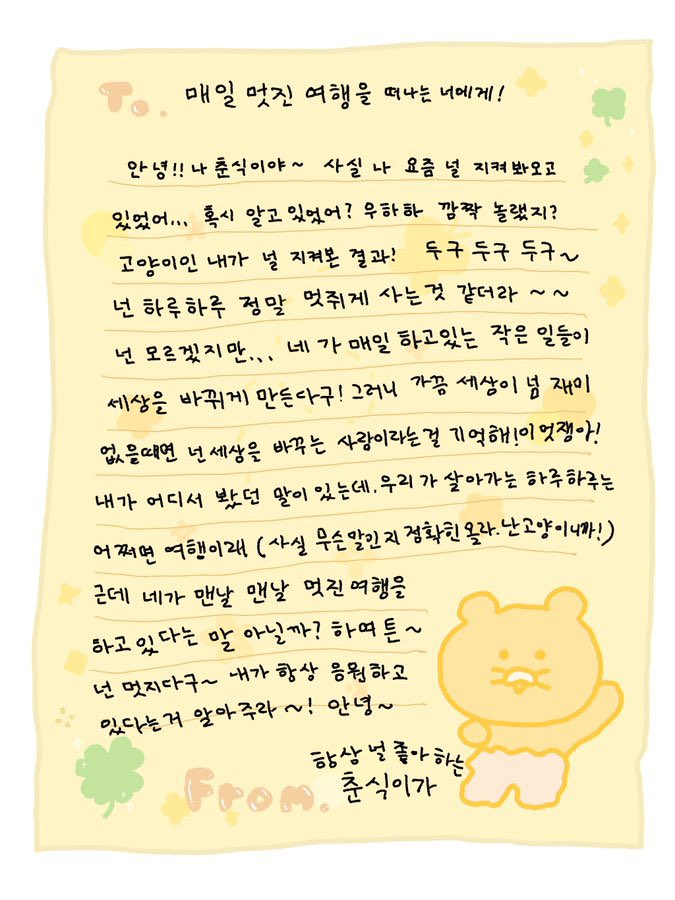 To. 매일 멋진 여행을 떠나는 너에게!
안녕!! 나 춘식이야~ 사실 나 요즘 널 지켜봐오고
있었어... 혹시 알고있었어? 우하하 깜짝 놀랬지?
고양이인 내가 널 지켜본 결과! 두구 두구 두구~
넌 하루하루 정말 멋쥐게 사는것 같더라 ~ ~
넌 모르겠지만... 네가 매일 하고있는 작은 일들이
세상을 바꾸게 만든다구! 그러니 가끔 세상이 넘 재미
없을때면 넌 세상을 바꾸는 사람이라는걸 기억해!이 멋쟁아!
내가 어디서 봤던 말이있는데, 우리가 살아가는 하루하루는
어쩌면 여행이래 (사실 무슨말인지 정확힌 몰라. 난고양이니까!)
근데 네가 맨날 맨날 멋진여행을
하고 있다는 말 아닐까? 하여튼~
넌 멋지다구~ 내가 항상 응원하고
있다는거 알아주라 ~! 안녕~
항상 널 좋아하는
From. 춘식이가